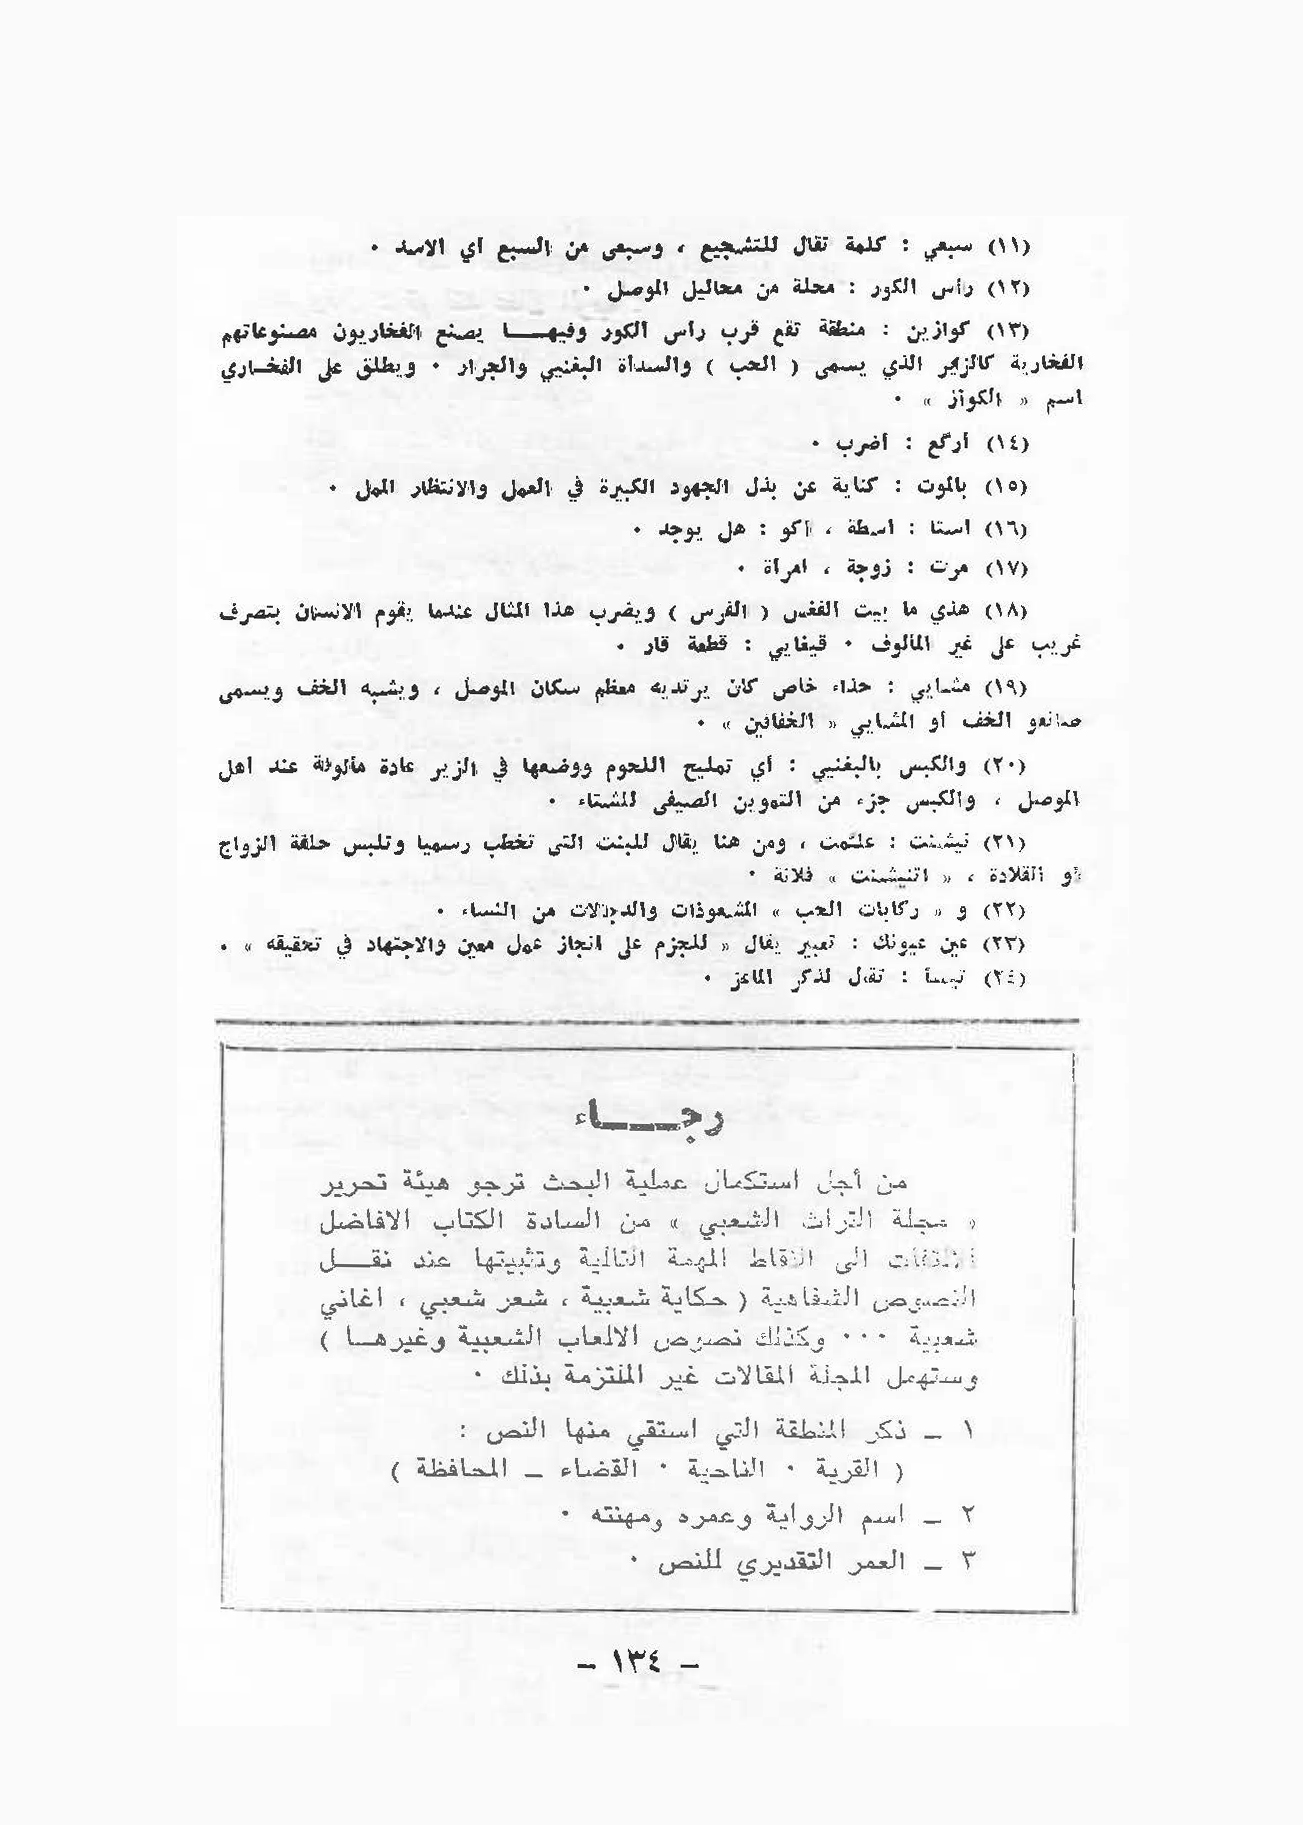 (١١) سبعي : كلمة تقال للتشجيع ، وسبعى من السبع أي الاسد ٠
(١٢) رأس الكور : محلة من محاليل الموصل ٠
(١٣) كوازين : منطقة تقع قرب رأس الكور وفيهـــا يصنع الفخاريون مصنوعاتهم
الفخارية كالزير الذي يسمى ( الحب ) والسدأة البغنيي والجرار ٠ ويطلق على الفخـاري
اسم « الكواز » ٠
(١٤) أرگع : أضرب ٠
(١٥) بالموت : كناية عن بذل الجهود الكبيرة في العمل والانتظار الممل ٠
(١٦) استا : اسطة ، أكو : هل يوجد ٠
(١٧) مرت : زوجة ، امرأة ٠
(١٨) هذي ما بيت الفغس ( الفرس ) ويضرب هذا المثال عندما يقوم الانسان بتصرف
غريب على غير المألوف ٠ قيغايي : قطعة قار ٠
(١٩) مشايي : حذاء خاص كان يرتديه معظم سكان الموصل ، ويشبه الخف ويسمى
صانعو الخف أو المشايي « الخفافين » ٠
(٢٠) والكبس بالبغنيي : أي تمليح اللحوم ووضعها في الزير عادة مألوفة عند أهل
الموصل ، والكبس جزء من التموين الصيفى للشتاء ٠
(٢١) نيشنت : علمت ، ومن هنا يقال للبنت التى تخطب رسميا وتلبس حلقة الزواج
أو القلادة ، « اتنيشنت » فلانة ٠
(٢٢) و « ركابات الحب » المشعوذات والدجالات من النساء ٠
(٢٣) عين عيونك : تعبير يقال « للجزم على انجاز عمل معين والاجتهاد في تحقيقه » ٠
(٢٤) تيسأ : تقال لذكر الماعز ٠
رجـــاء
من أجل استكمال عملية البحث ترجو هيئة تحرير
« مجلة التراث الشعبي » من السادة الكتاب الافاضل
الالتفات الى النقاط المهمة التالية وتثبيتها عند نقـــل
النصوص الشفاهية ( حكاية شعبية ، شعر شعبي ، أغاني
شعبية ٠٠٠ وكذلك نصوص الالعاب الشعبية وغيرهــا )
وستهمل المجلة المقالات غير الملتزمة بذلك ٠
١ ــ ذكر المنطقة التي استقي منها النص :
( القرية ٠ الناحية ٠ القضاء ــ المحافظة )
٢ ــ اسم الرواية وعمره ومهنته ٠
٣ ــ العمر التقديري للنص ٠
ــ ١٣٤ ــ